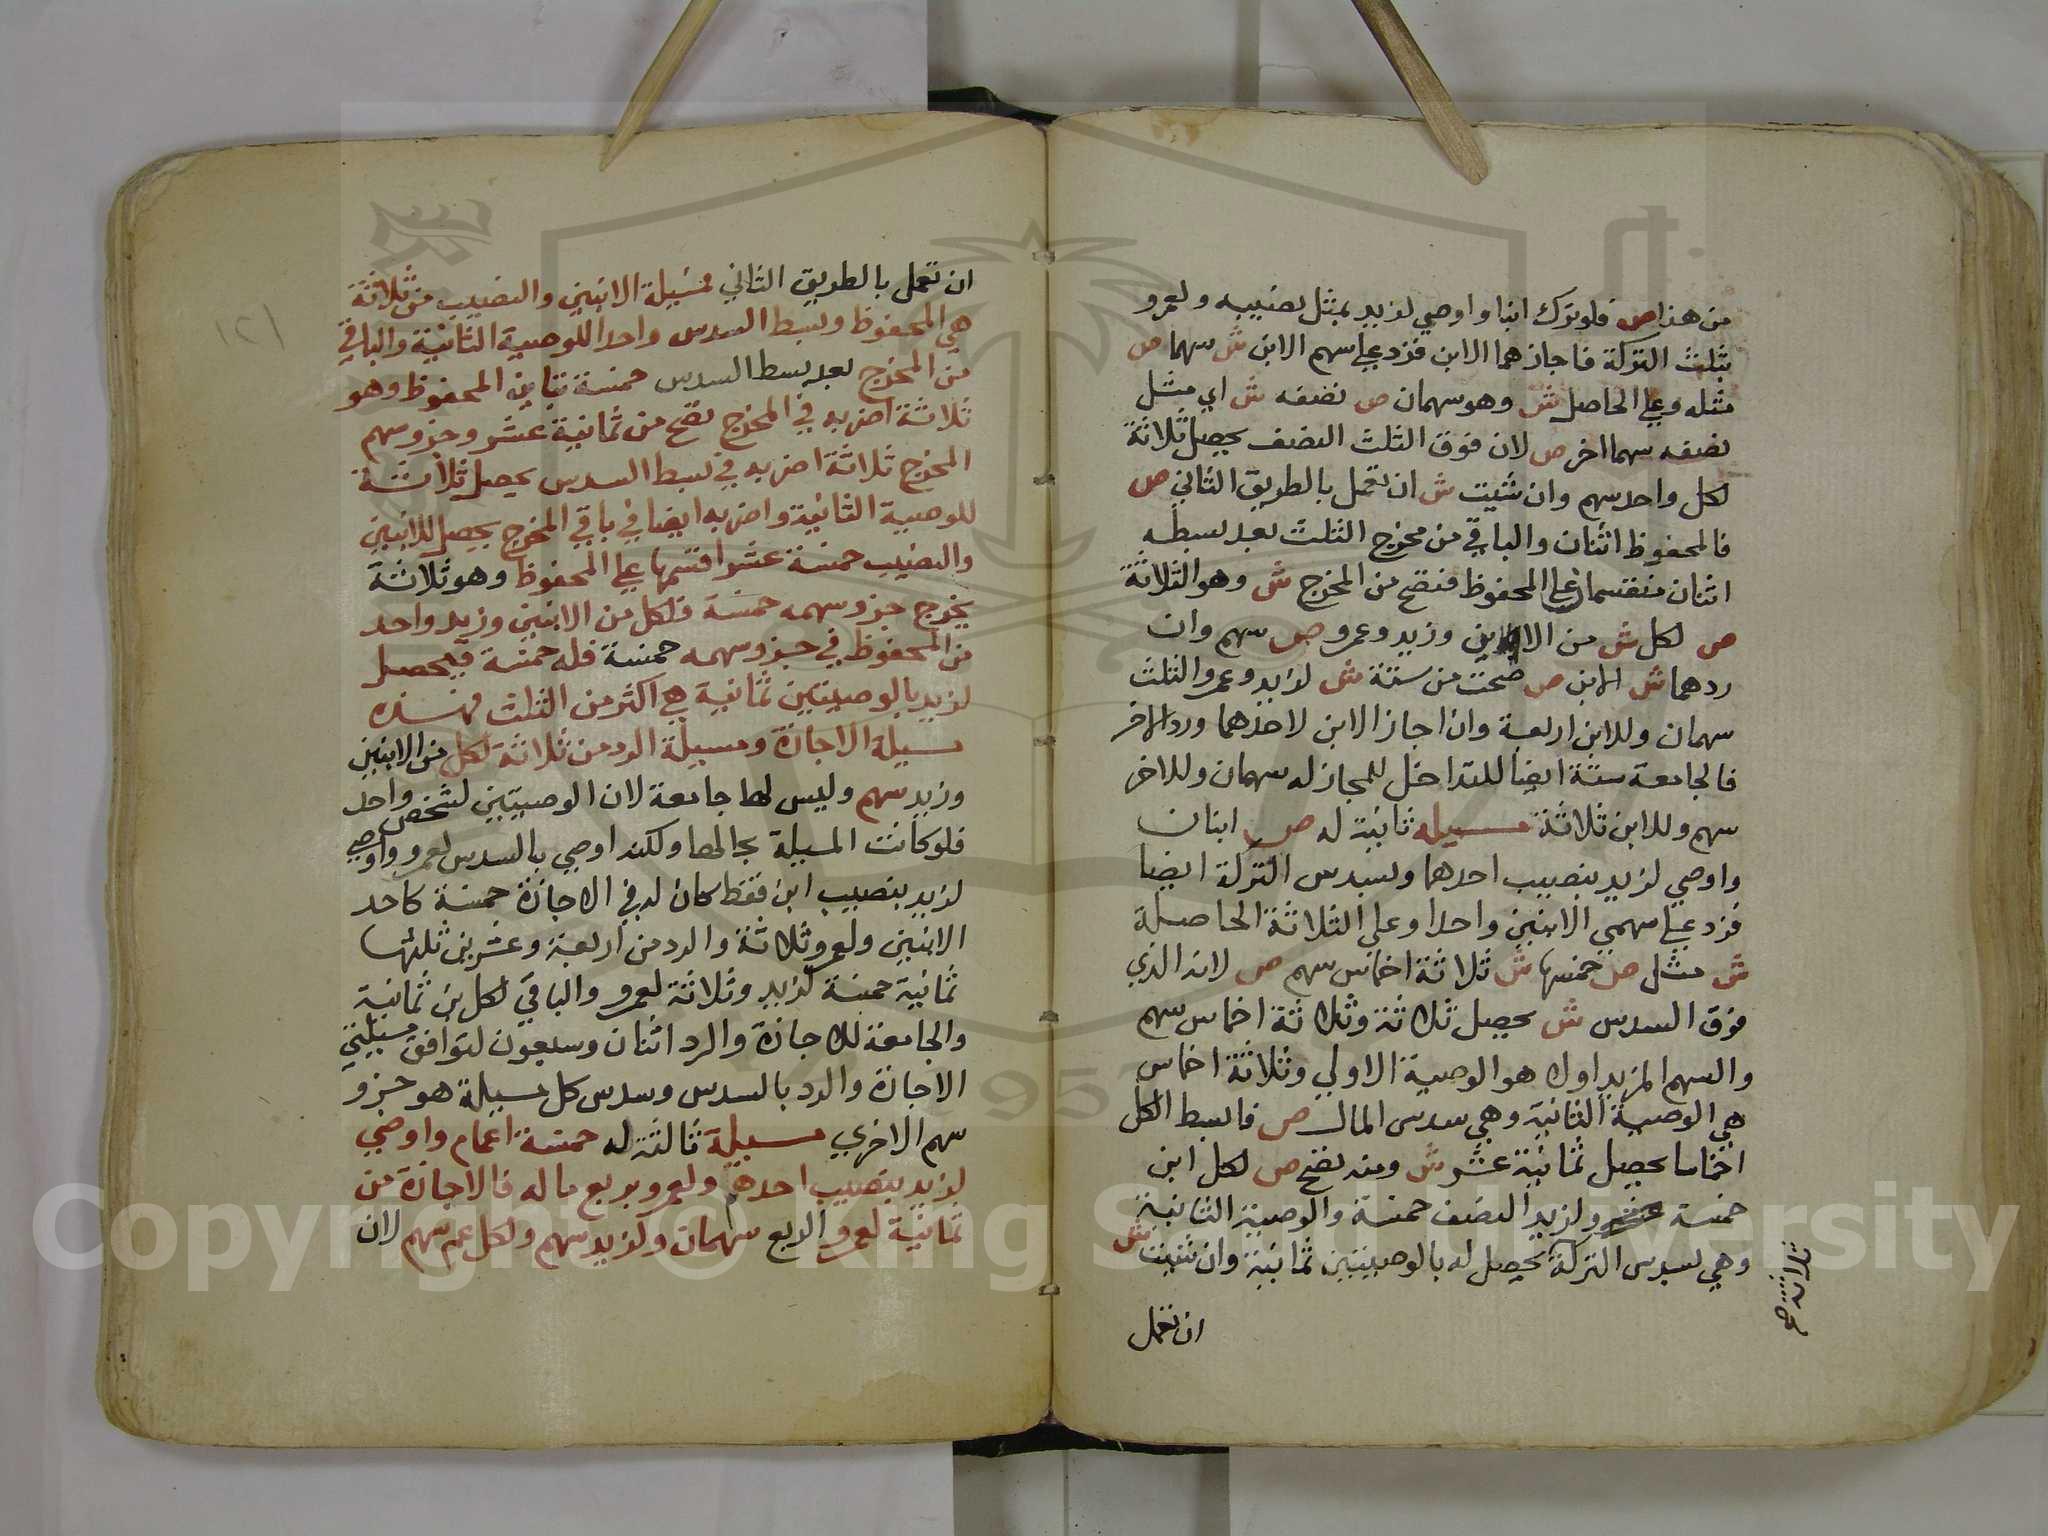 من هذا ص فلو ترك ابنا واوصي لزيد بمثل نصيبه ولعمرو
بثلث التركة فاجازهما الابن فزد علي سهم الابن ش سهما ص
مثله وعلي الحاصل ش وهو سهمان ص نصفه ش اي مثل
نصفه سهما اخر ص لان فوق الثلث النصف يحصل ثلاثة
لكل واحد سهم وان شيت ش ان تعمل بالطريق الثاني ص
فالمحفوظ اثنان والباقي من مخرج الثلث بعد بسطه
اثنان منقسما علي المحفوظ فتصح من المخرج ش وهو الثلاثة
ص لكل ش من الابن وزيد وعمرو ص سهم وان
ردهما ش الابن ص صحت من ستة ش لزيد وعمرو الثلث
سهمان وللابن اربعة وان اجاز الابن لاحدهما ورد الاخر
فالجامعة ستة ايضا للتداخل للمجاز له سهمان وللاخر
سهم وللابن ثلاثة مسيله ثانية له ص ابنان
واوصي لزيد بنصيب احدهما وبسدس التركة ايضا
فزد علي سهمي الابنين واحدا وعلي الثلاثة الحاصلة
ش مثل ص خمسها ش ثلاثة اخماس سهم ص لانه الذي
فوق السدس ش يحصل ثلاثة وثلاثة اخماس سهم
والسهم المزيد اولا هو الوصية الاولي وثلاثة اخماس
هي الوصية الثانية وهي سدس المال ص فابسط الكل
اخماسا يحصل ثمانية عشر ش ومنه تصح ص لكل ابن
خمسة ولزيد النصف خمسة والوصية الثانية
وهي بسدس التركة يحصل له بالوصيتين ثمانية وان شيت ش
ثلاثة صح
ان تعمل
١٢١
ان تعمل بالطريق الثاني فمسيلة الابنين والنصيب من ثلاثة
هي المحفوظ وبسط السدس واحد اللوصية الثانية والباقي
من المخرج بعد بسط السدس خمسة تباين المحفوظ وهو
ثلاثة اضربه في المخرج تصح من ثمانية عشر وجزو سهم
المخرج ثلاثة اضربه في بسط السدس يحصل ثلاثة
للوصية الثانية واضربه ايضا في باقي المخرج يحصل للابنين
والنصيب خمسة عشر اقسمها علي المحفوظ وهو ثلاثة
يخرج جزو سهمه خمسة فلكل من الابنين وزيد واحد
من المحفوظ في جزو سهمه خمسة فله خمسة فيحصل
لزيد بالوصيتين ثمانية هي اكثر من الثلث فهذه
مسيلة الاجازة ومسيلة الرد من ثلاثة لكل من الابنين
وزيد سهم وليس لها جامعة لان الوصيتين لشخص واحد
فلو كانت المسيلة بحالها ولكنه اوصي بالسدس لعمرو واوصي
لزيد بنصيب ابن فقط كان له في الاجازة خمسة كاحد
الابنين ولعمرو ثلاثة والرد من اربعة وعشرين ثلثها
ثمانية خمسة لزيد وثلاثة لعمرو والباقي لكل بن ثمانية
والجامعة للاجازة والرد اثنان وسبعون لتوافق مسيلتي
الاجازة والرد بالسدس وسدس كل مسيلة هو جزو
سهم الاخري مسيلة ثالثة له خمسة اعمام واوصي
لزيد بنصيب احدهم ولعمرو بربع ماله فالاجازة من
ثمانية لعمرو الربع سهمان ولزيد سهم ولكل عم سهم لان